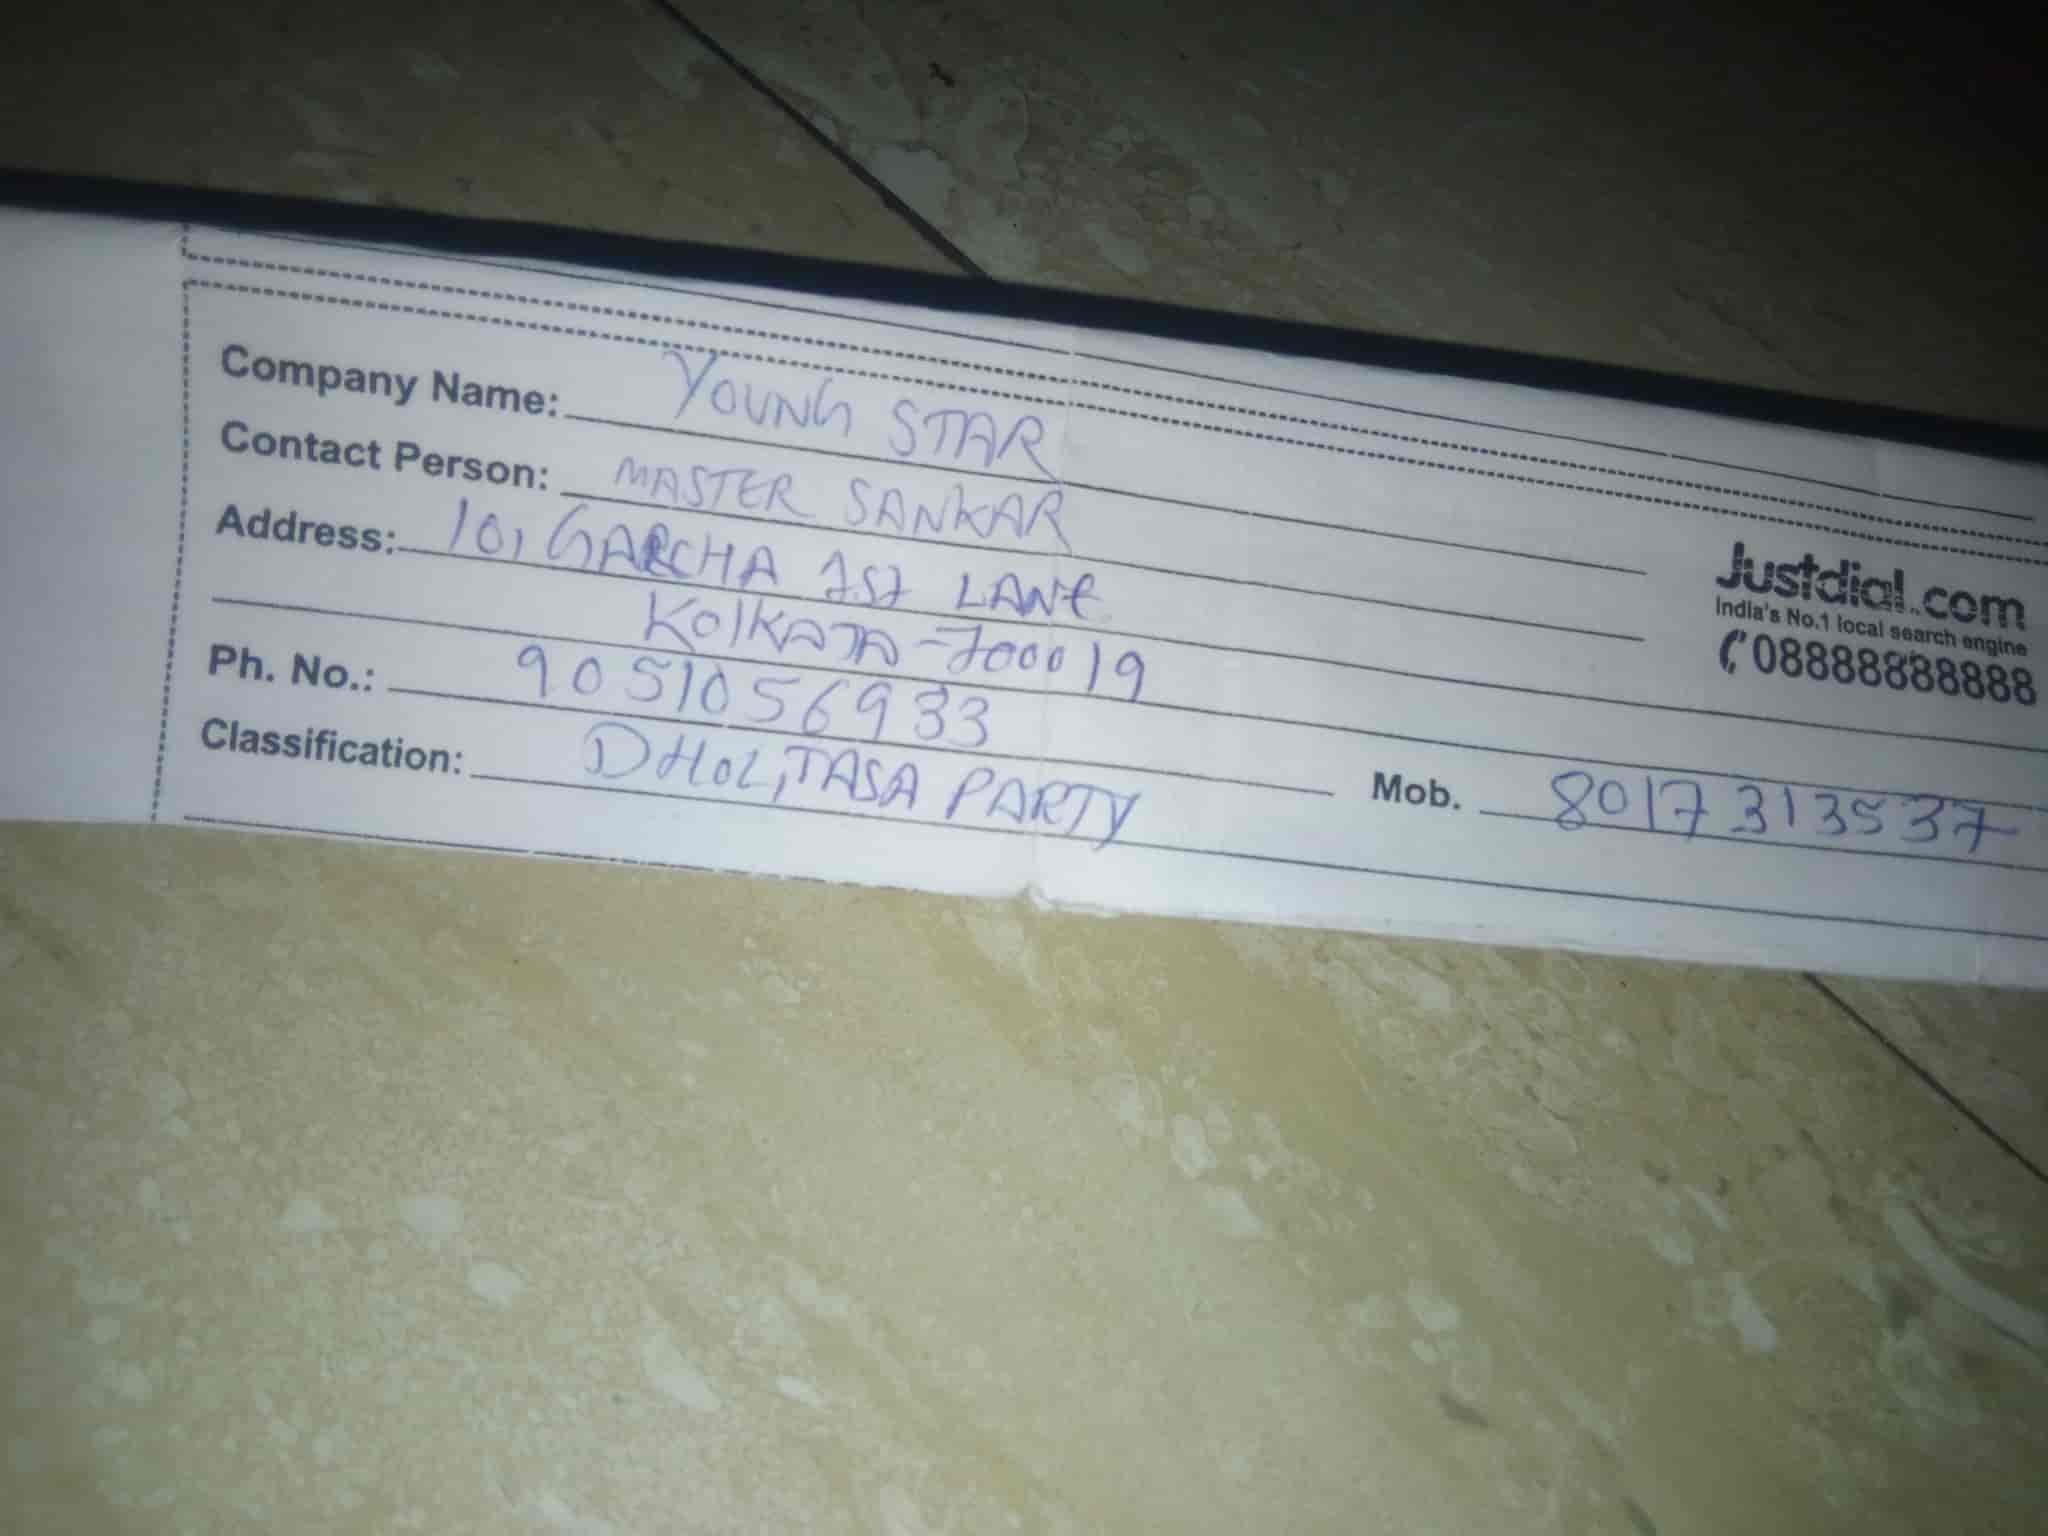 Company Name: YOUNG STAR
Contact Person: MASTER SANKAR
Address: 10, GARCHA 1st LANE
Kolkata - 700019
Ph. No.: 9051056933
Mob. 8017313537
Classification: DHOL, TASA PARTY
Justdial.com
India's No.1 local search engine
08888888888